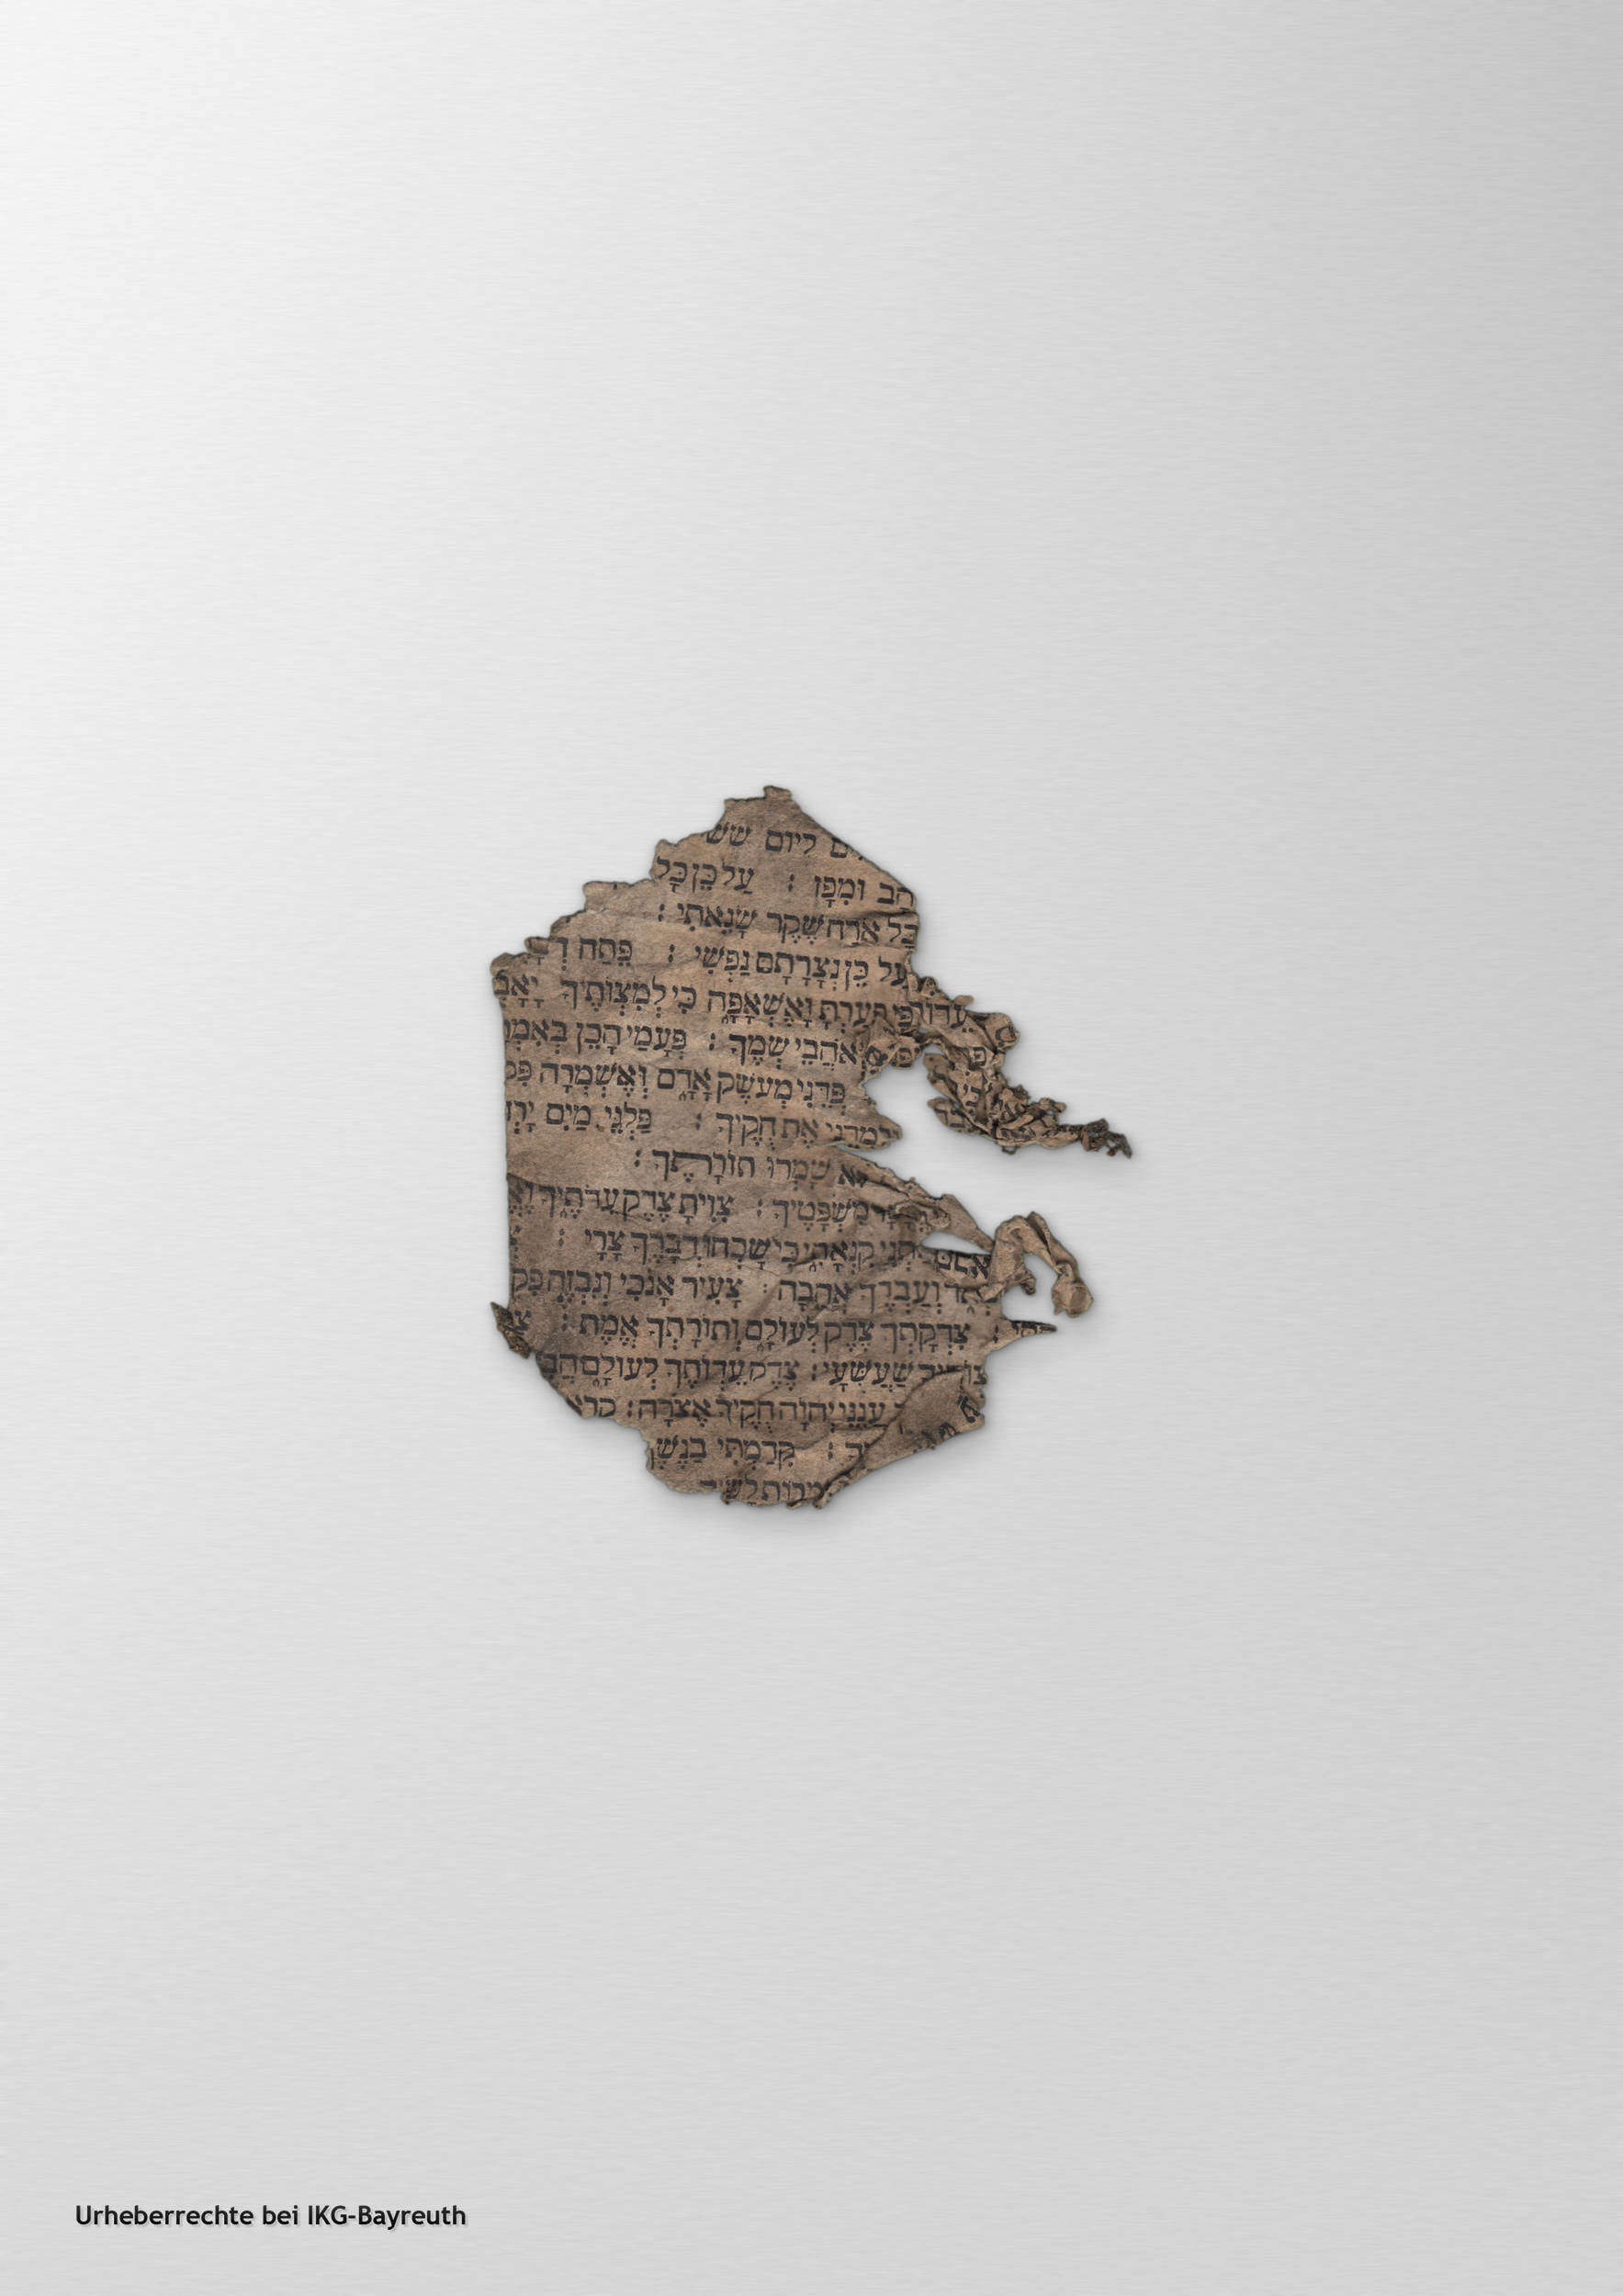 ליום שש
ומפז : על כן כל
כל ארח שקר שנאתי :
על כן נצרתם נפשי : פתח
פערתי ואשאפה כי למצותיך יאב
אהבי שמך : פעמי הכן באמר
מעשק אדם ואשמרה פק
את חקיך : פלגי מים ירד
שמרו תורתך :
משפטיך : צוית צדק עדתיך
קנאתי כי שכחו דבריך צרי :
ועבדך אהבה : צעיר אנכי ונבזה פק
צדקתך צדק לעולם ותורתך אמת :
שעשעי : צדק עדותיך לעולם הב
ענני יהוה חקיך אצרה : קרא
: קדמתי בנשף